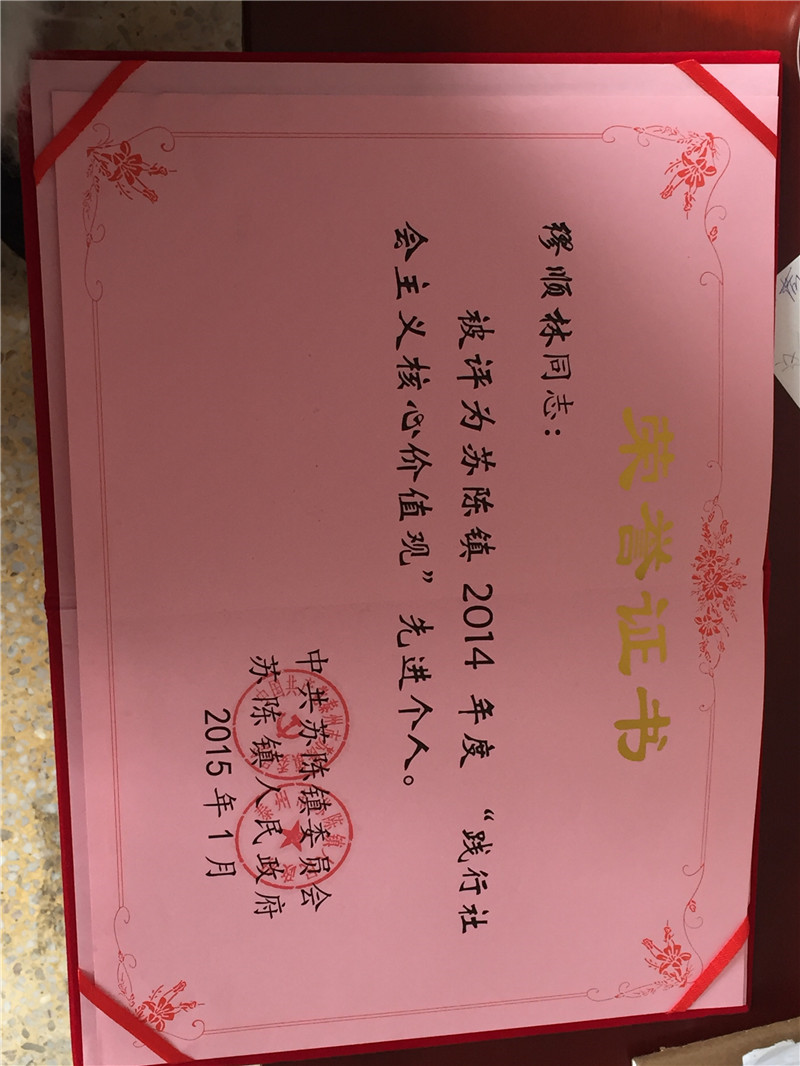 荣誉证书
缪顺林同志：
被评为苏陈镇2014年度 “践行社
会主义核心价值观” 先进个人。
中共苏陈镇委员会
苏陈镇人民政府
2015年1月